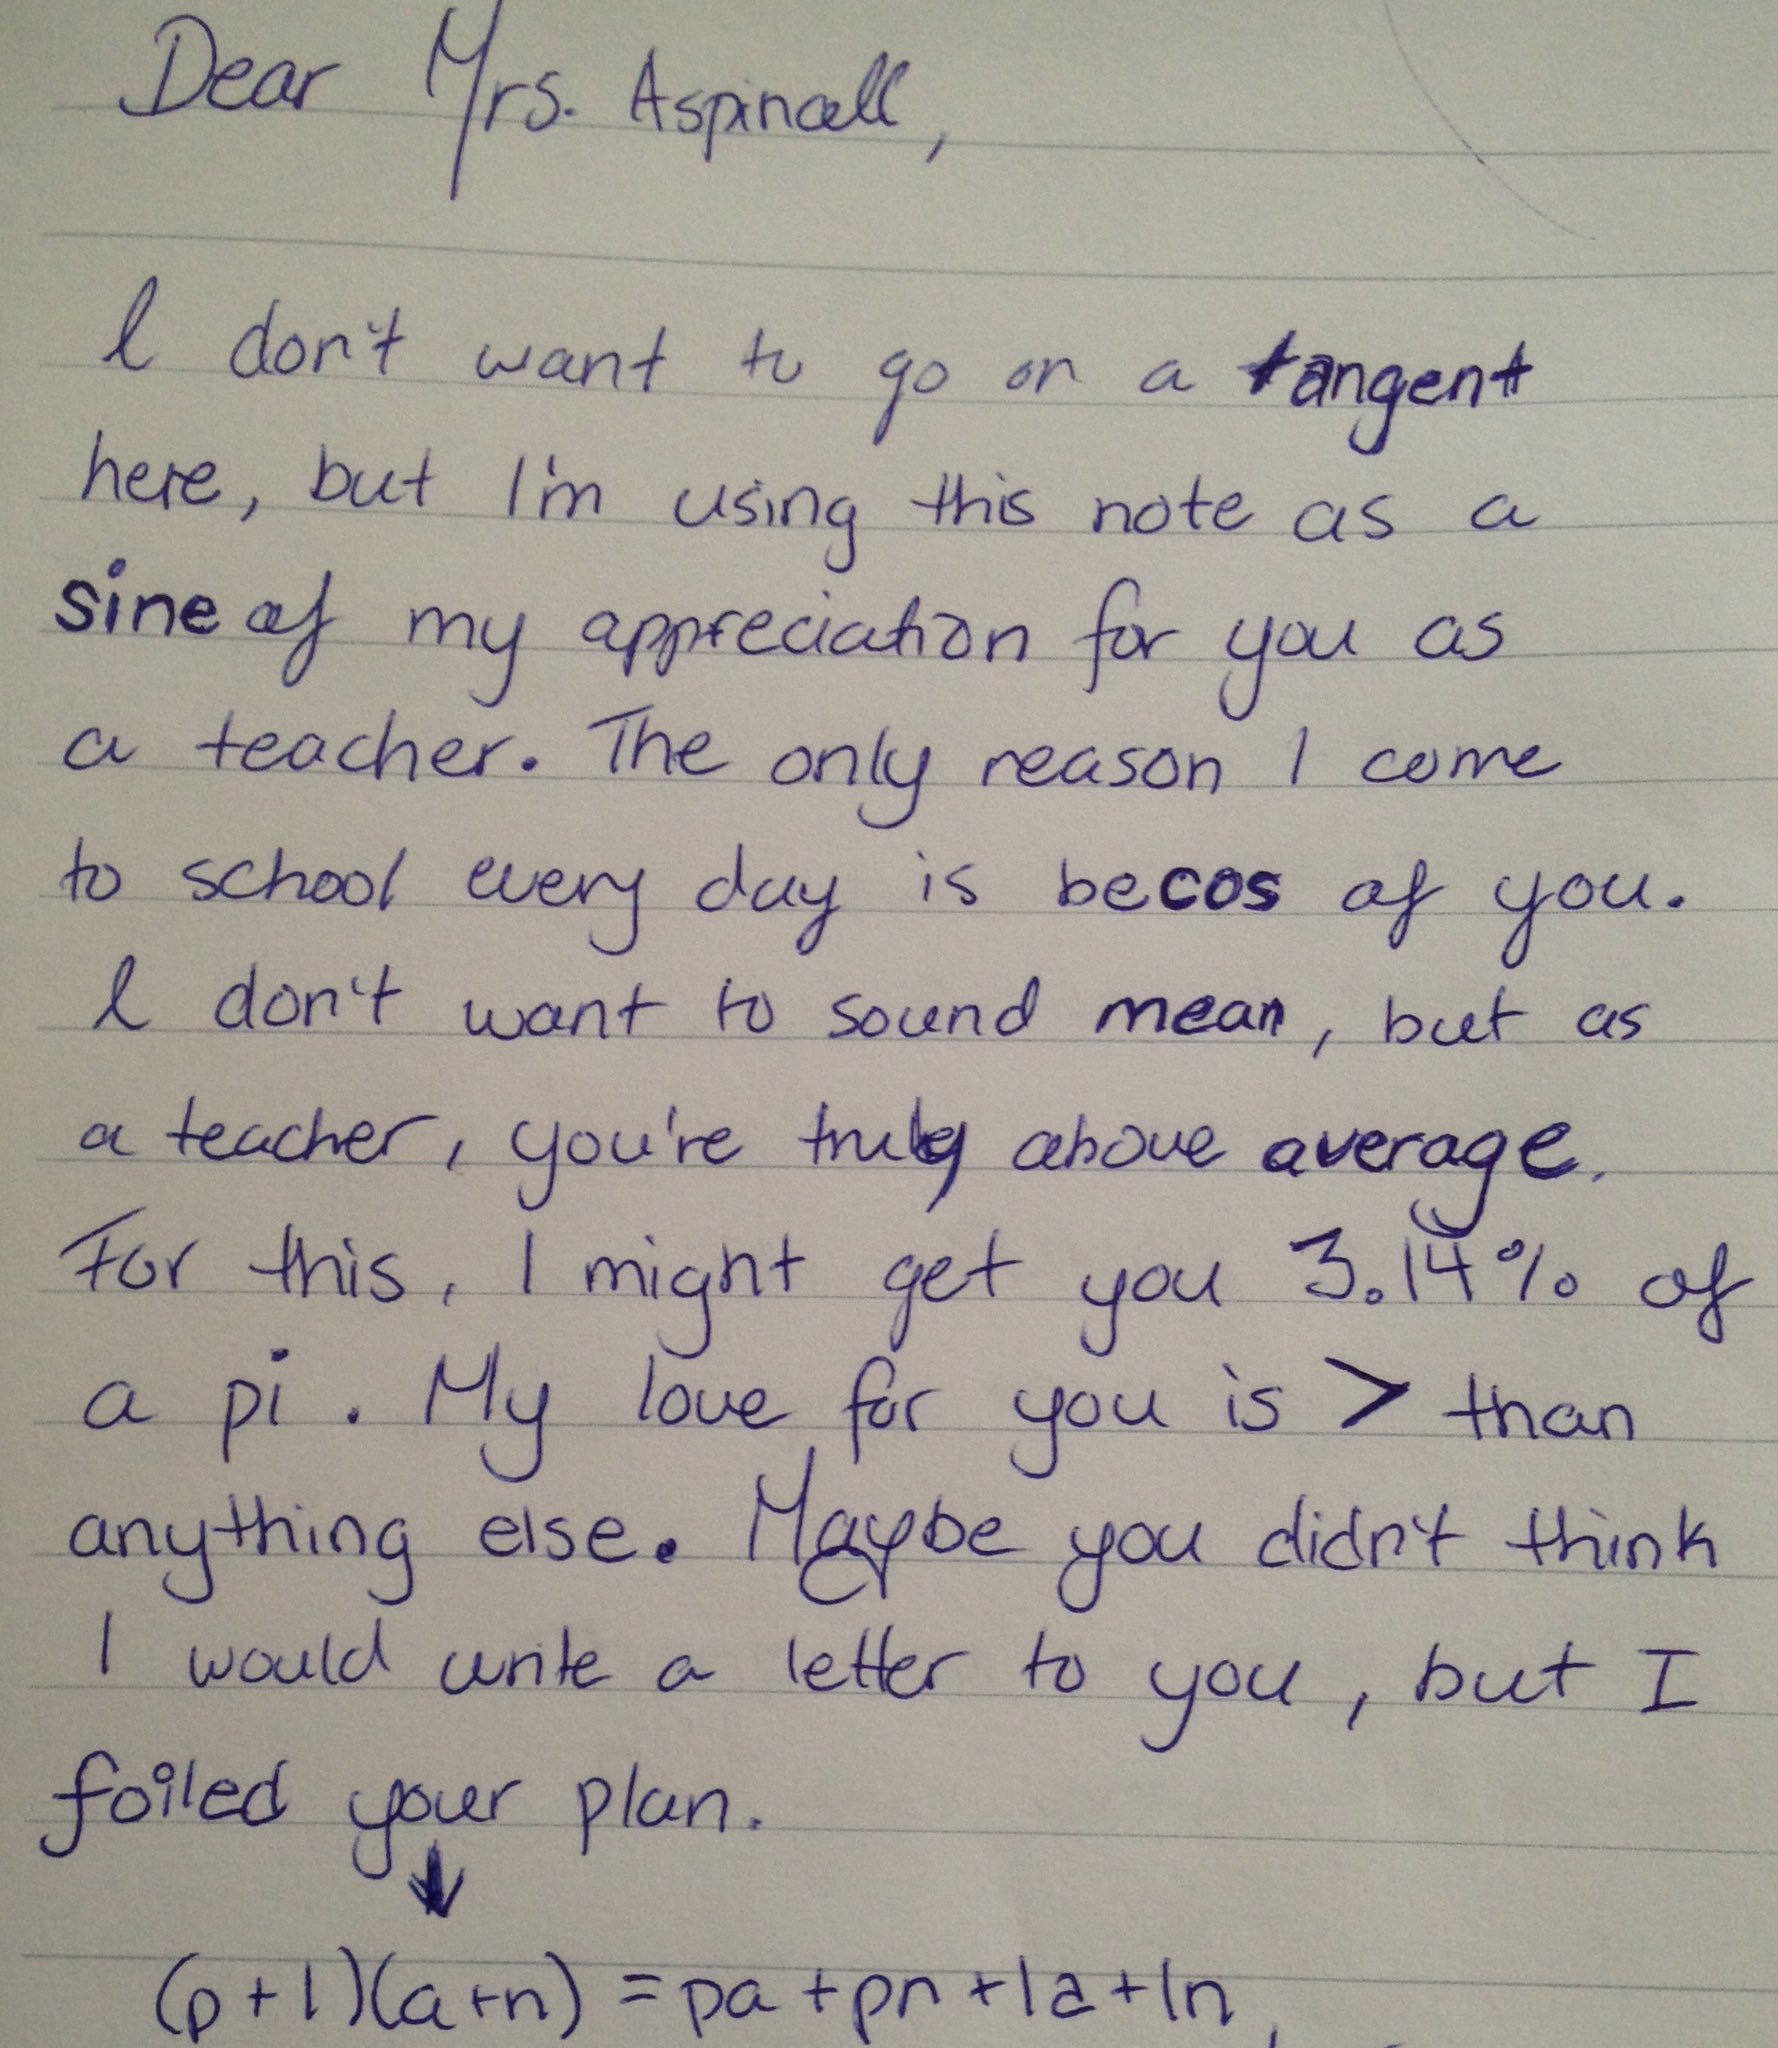 Dear Mrs. Aspinall,
I don't want to go on a tangent
here, but I'm using this note as a
sine of my appreciation for you as
a teacher. The only reason I come
to school every day is becos of you.
I don't want to sound mean, but as
a teacher, you're truly above average.
For this, I might get you 3.14% of
a pi. My love for you is > than
anything else. Maybe you didn't think
I would write a letter to you, but I
foiled your plan.
↓
(p+l)(a+n) = pa+pn+la+ln